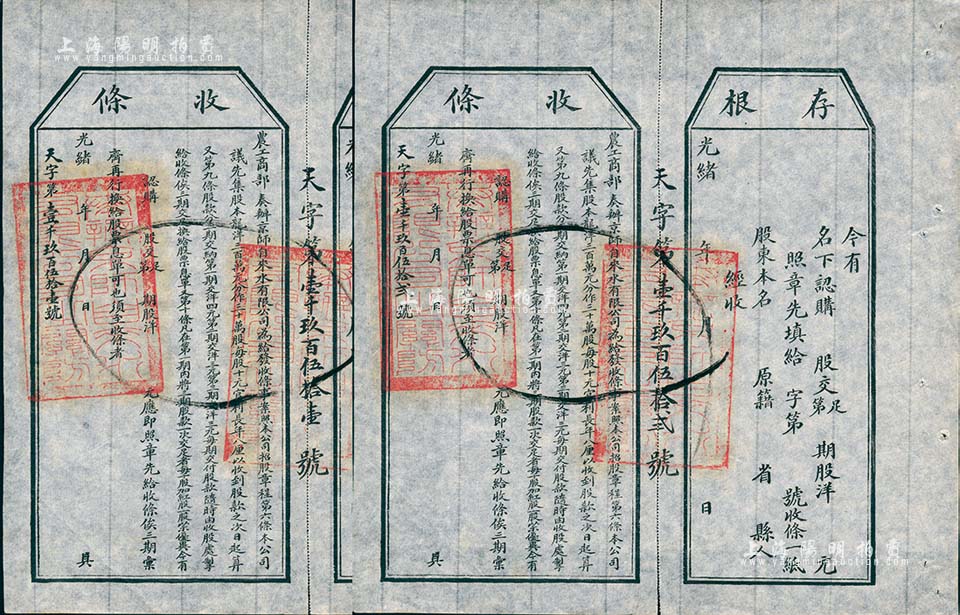 存根
今有
名下認購 股交足第 期股洋 元
照章先填給 字第 號收條一紙
股東本名 原籍 省 縣人
經收
光緒 年 月 日
天字第壹千玖百伍拾弍號
收條
農工商部奏辦京師自來水有限公司為給發收條事案照本公司招股章程第六條本公司
議先集股本銀洋三百萬元分作三十萬股每股十元官利長年八厘以收到股款之次日起算
又第九條股款分三期交納第一期交洋四元第二期交洋三元第三期交洋三元每期交付股款隨時由收股處掣
給收條俟三期交足換給股票息單又第十條凡在第一期內將三期股款一次交足者每十股加紅股一股以示優異今有
認購 股交足第 期股洋 元應即照章先給收條俟三期彙
齊再行換給股票息單可也須至收條者
光緒 年 月 日 具
天字第壹千玖百伍拾弍號
天字第壹千玖百伍拾壹號
收條
農工商部奏辦京師自來水有限公司為給發收條事案照本公司招股章程第六條本公司
議先集股本銀洋三百萬元分作三十萬股每股十元官利長年八厘以收到股款之次日起算
又第九條股款分三期交納第一期交洋四元第二期交洋三元第三期交洋三元每期交付股款隨時由收股處掣
給收條俟三期交足換給股票息單又第十條凡在第一期內將三期股款一次交足者每十股加紅股一股以示優異今有
認購 股交足第 期股洋 元應即照章先給收條俟三期彙
齊再行換給股票息單可也須至收條者
光緒 年 月 日 具
天字第壹千玖百伍拾壹號
上海陽明拍賣
www.yangmingauction.com
上海陽明拍賣
www.yangmingauction.com